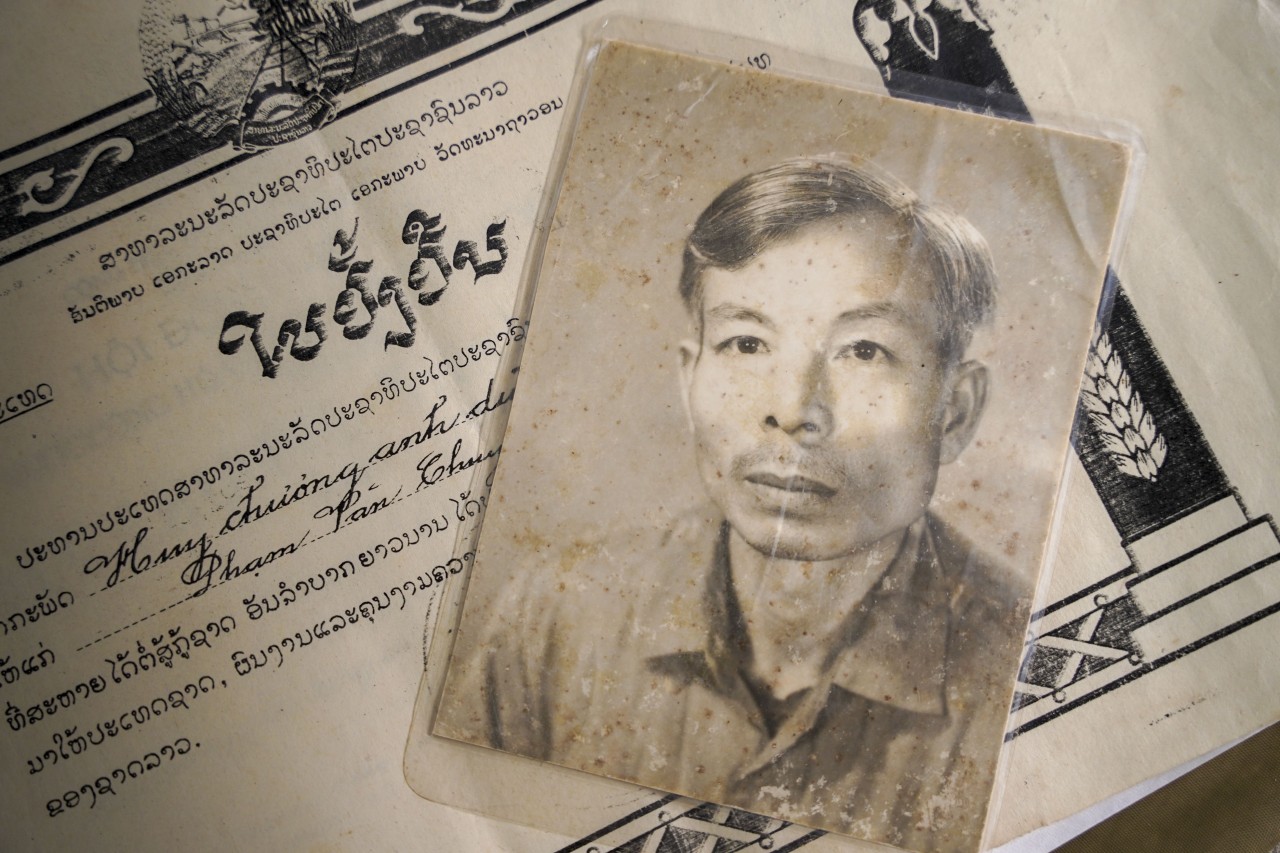 ສາທາລະນະລັດປະຊາທິປະໄຕປະຊາຊົນລາວ
ສັນຕິພາບ ເອກະລາດ ປະຊາທິປະໄຕ ເອກະພາບ ວັດທະນາຖາວອນ
ໃບຢັ້ງຢືນ
ປະທານປະເທດສາທາລະນະລັດປະຊາທິປະໄຕປະຊາຊົນ
Huy chương anh
ໃຫ້ແກ່ Phạm Tán
ທີ່ສະຫາຍໄດ້ຕໍ່ສູ້ກູ້ຊາດ ອັນລຳບາກຍາວນານ ໄດ້
ມາໃຫ້ປະເທດຊາດ, ຜົນງານແລະຄຸນງາມຄວາ
ຂອງຊາດລາວ.